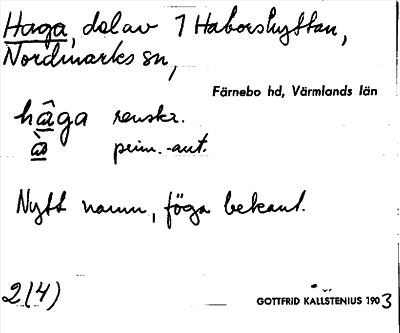 Haga, del av 1 Haborshyttan,
Nordmarks sn,
Färnebo hd, Värmlands län
hâga renskr.
prim.-ant.
Nytt namn, föga bekant.
2(4)
GOTTFRID KALLSTENIUS 1903